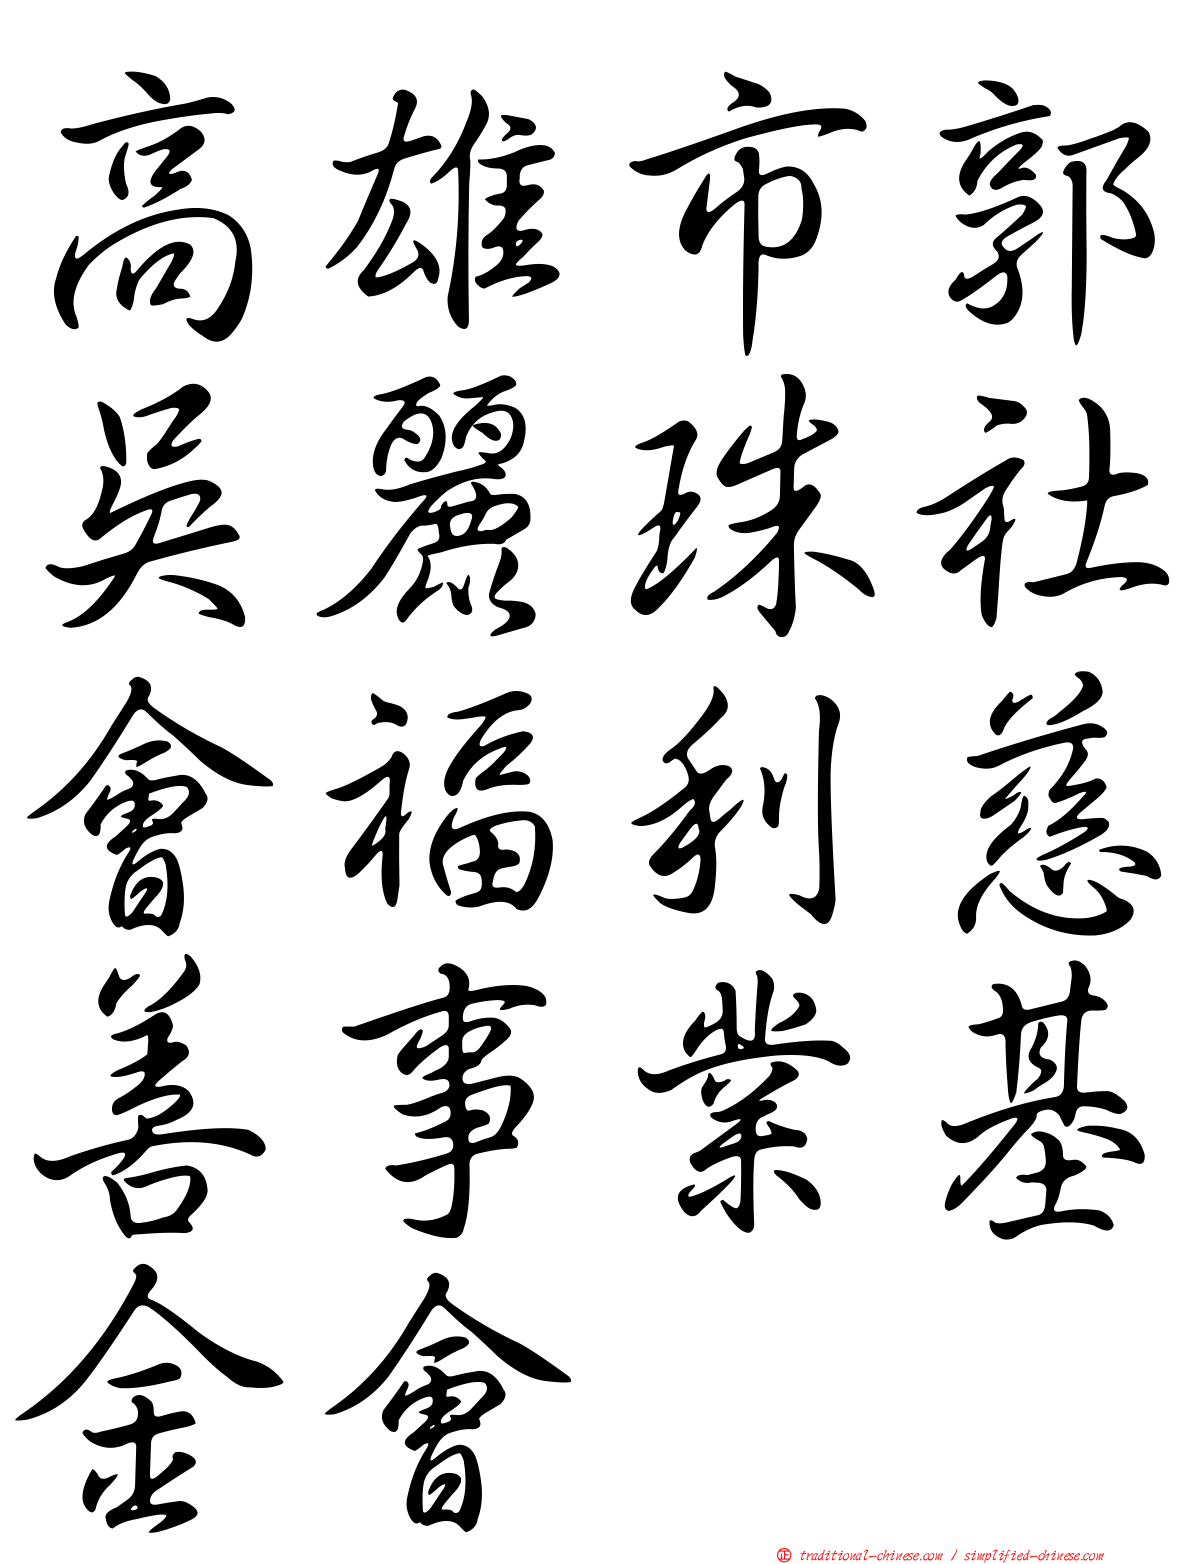 高雄市郭
吳麗珠社
會福利慈
善事業基
金會
正 traditional-chinese.com / simplified-chinese.com